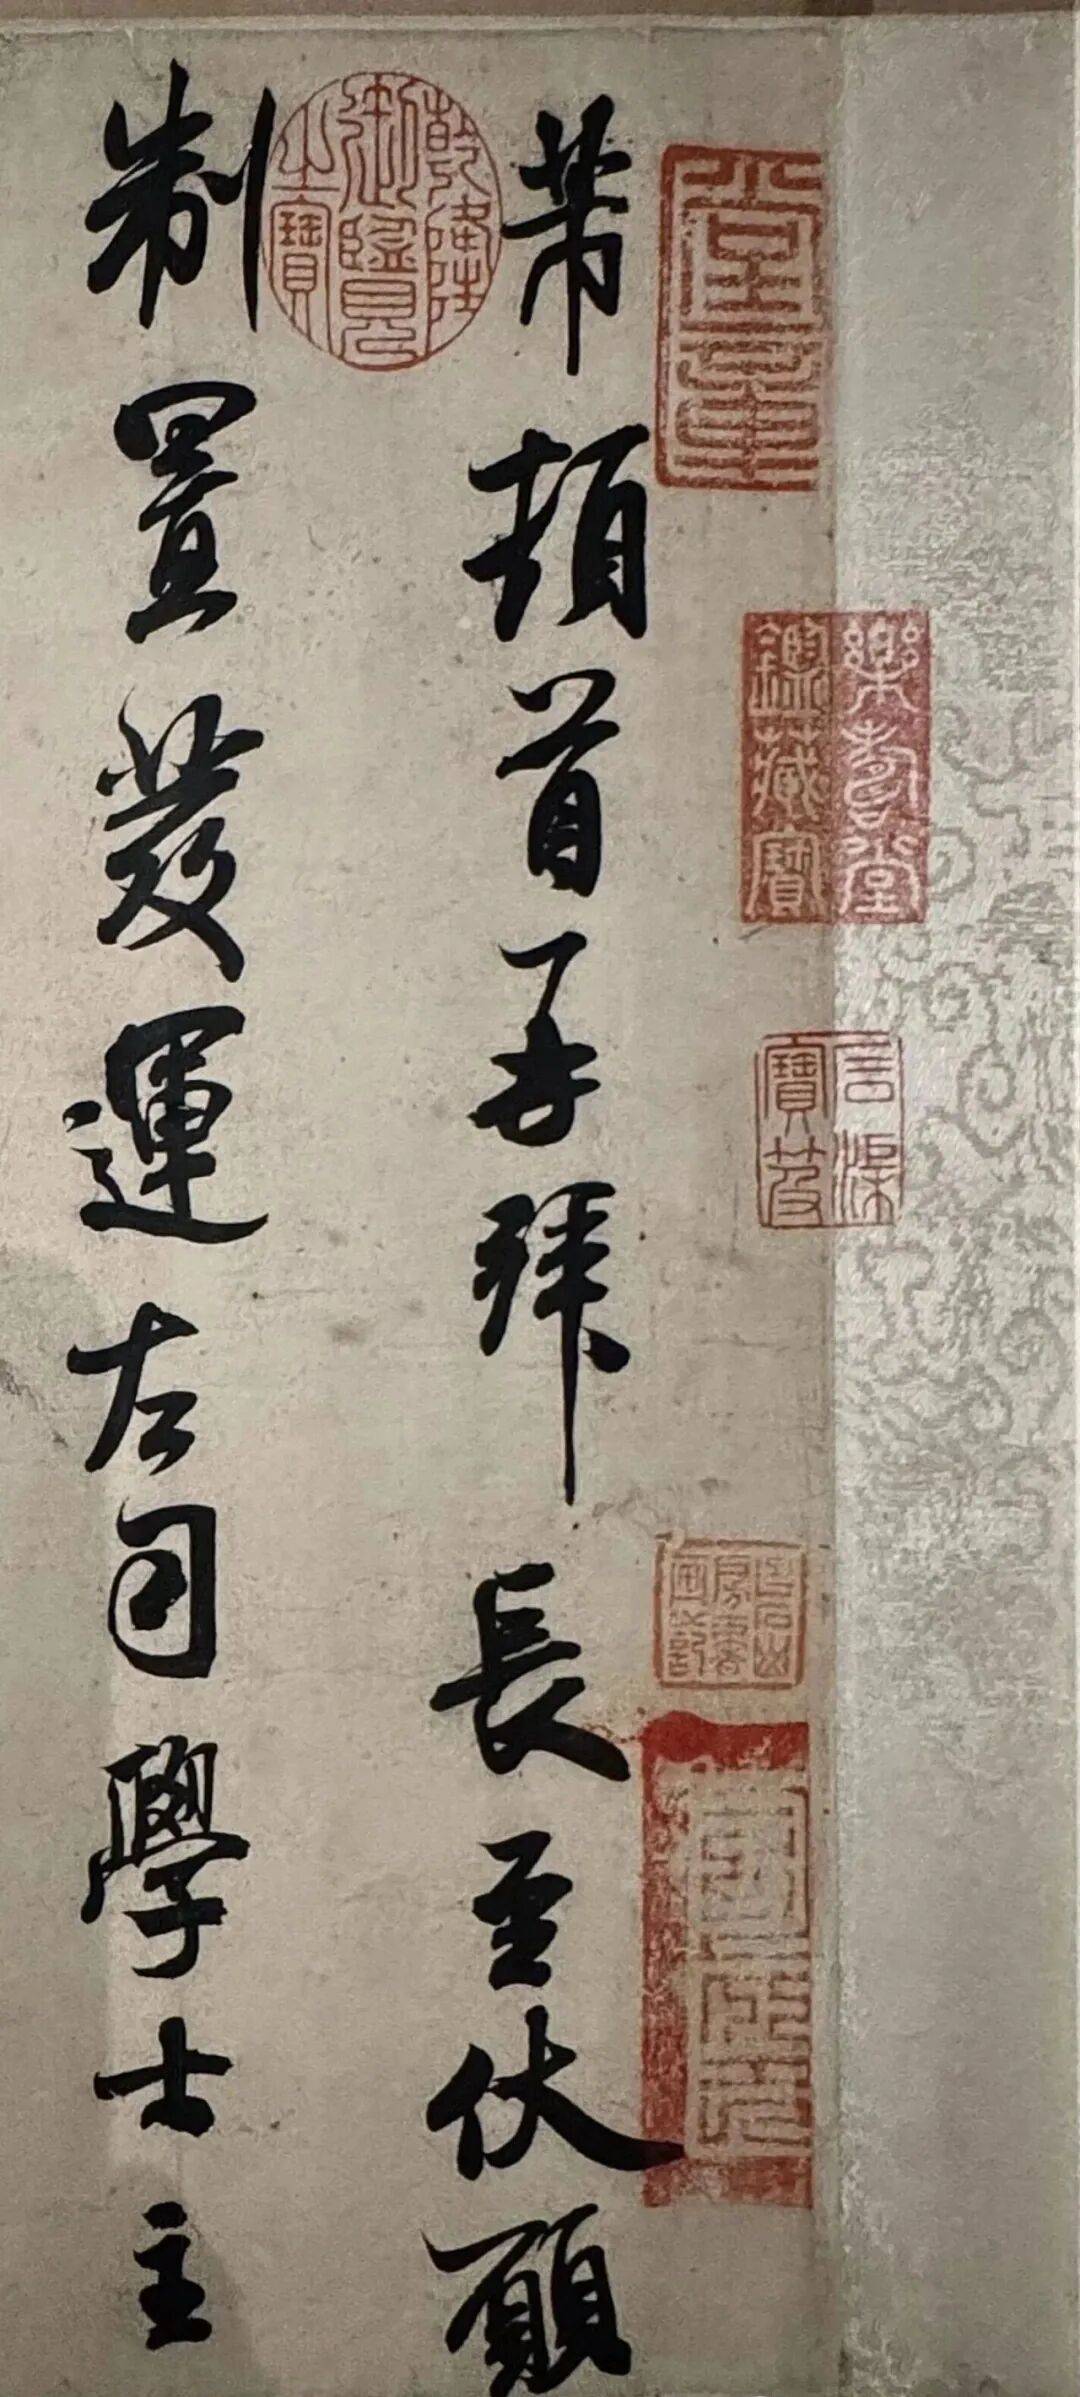 樂壽堂
鑑藏寶
石渠
寶笈
芾頓首再拜長至伏願
乾隆
御覽
之寶
制置發運左司學士主